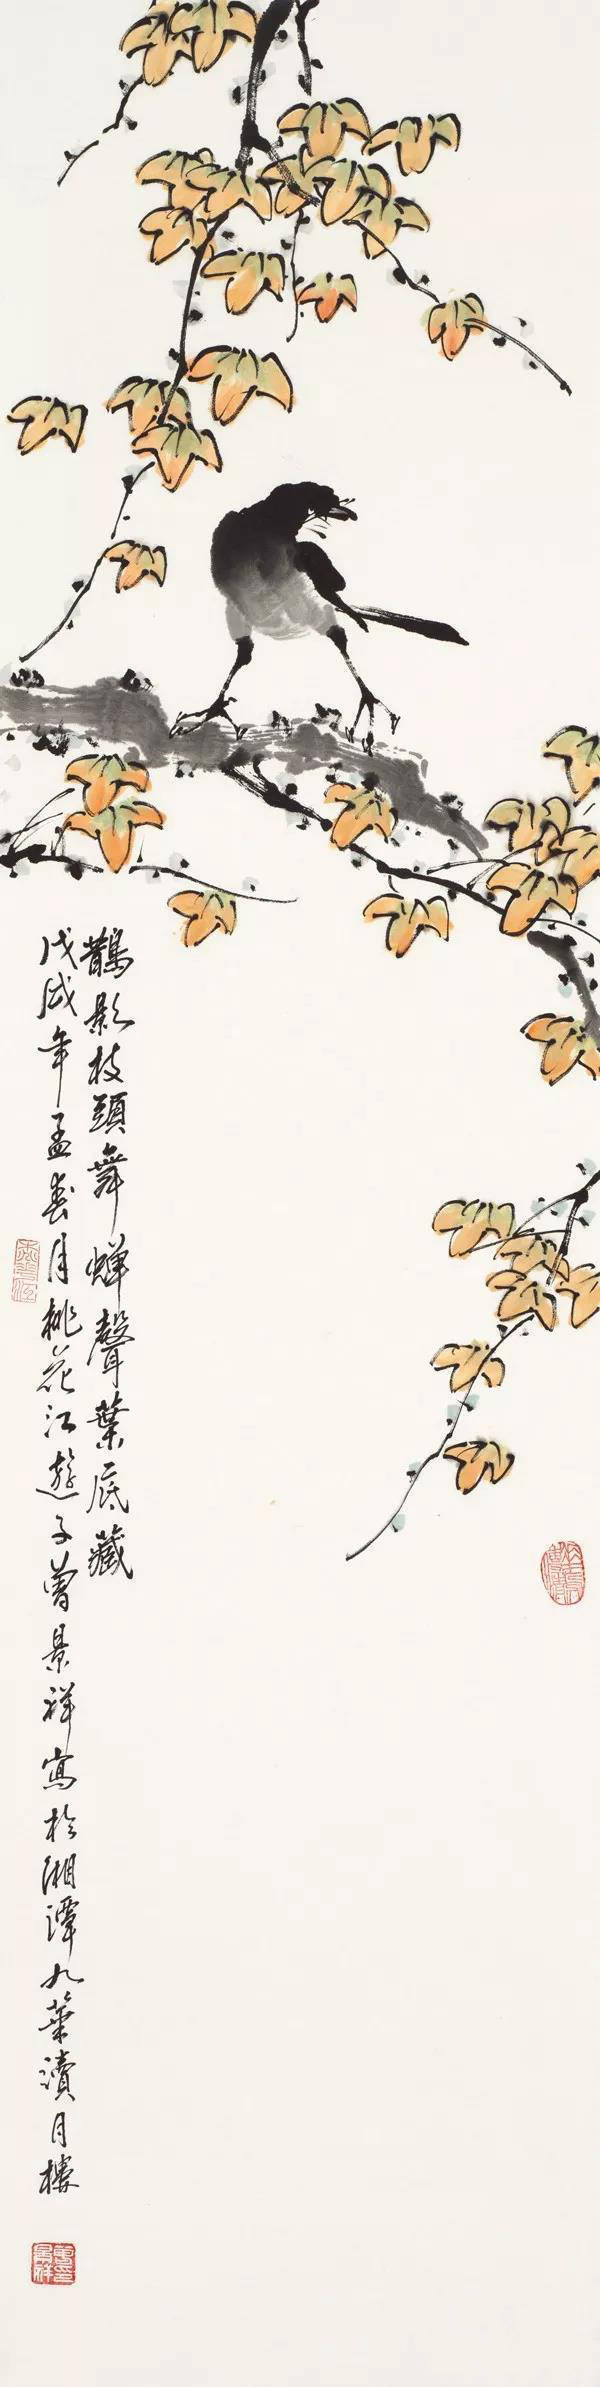 鵲影枝頭舞蟬聲葉底藏
戊戌年孟春月桃花江遊子曾景祥寫於湘潭九華讀月樓